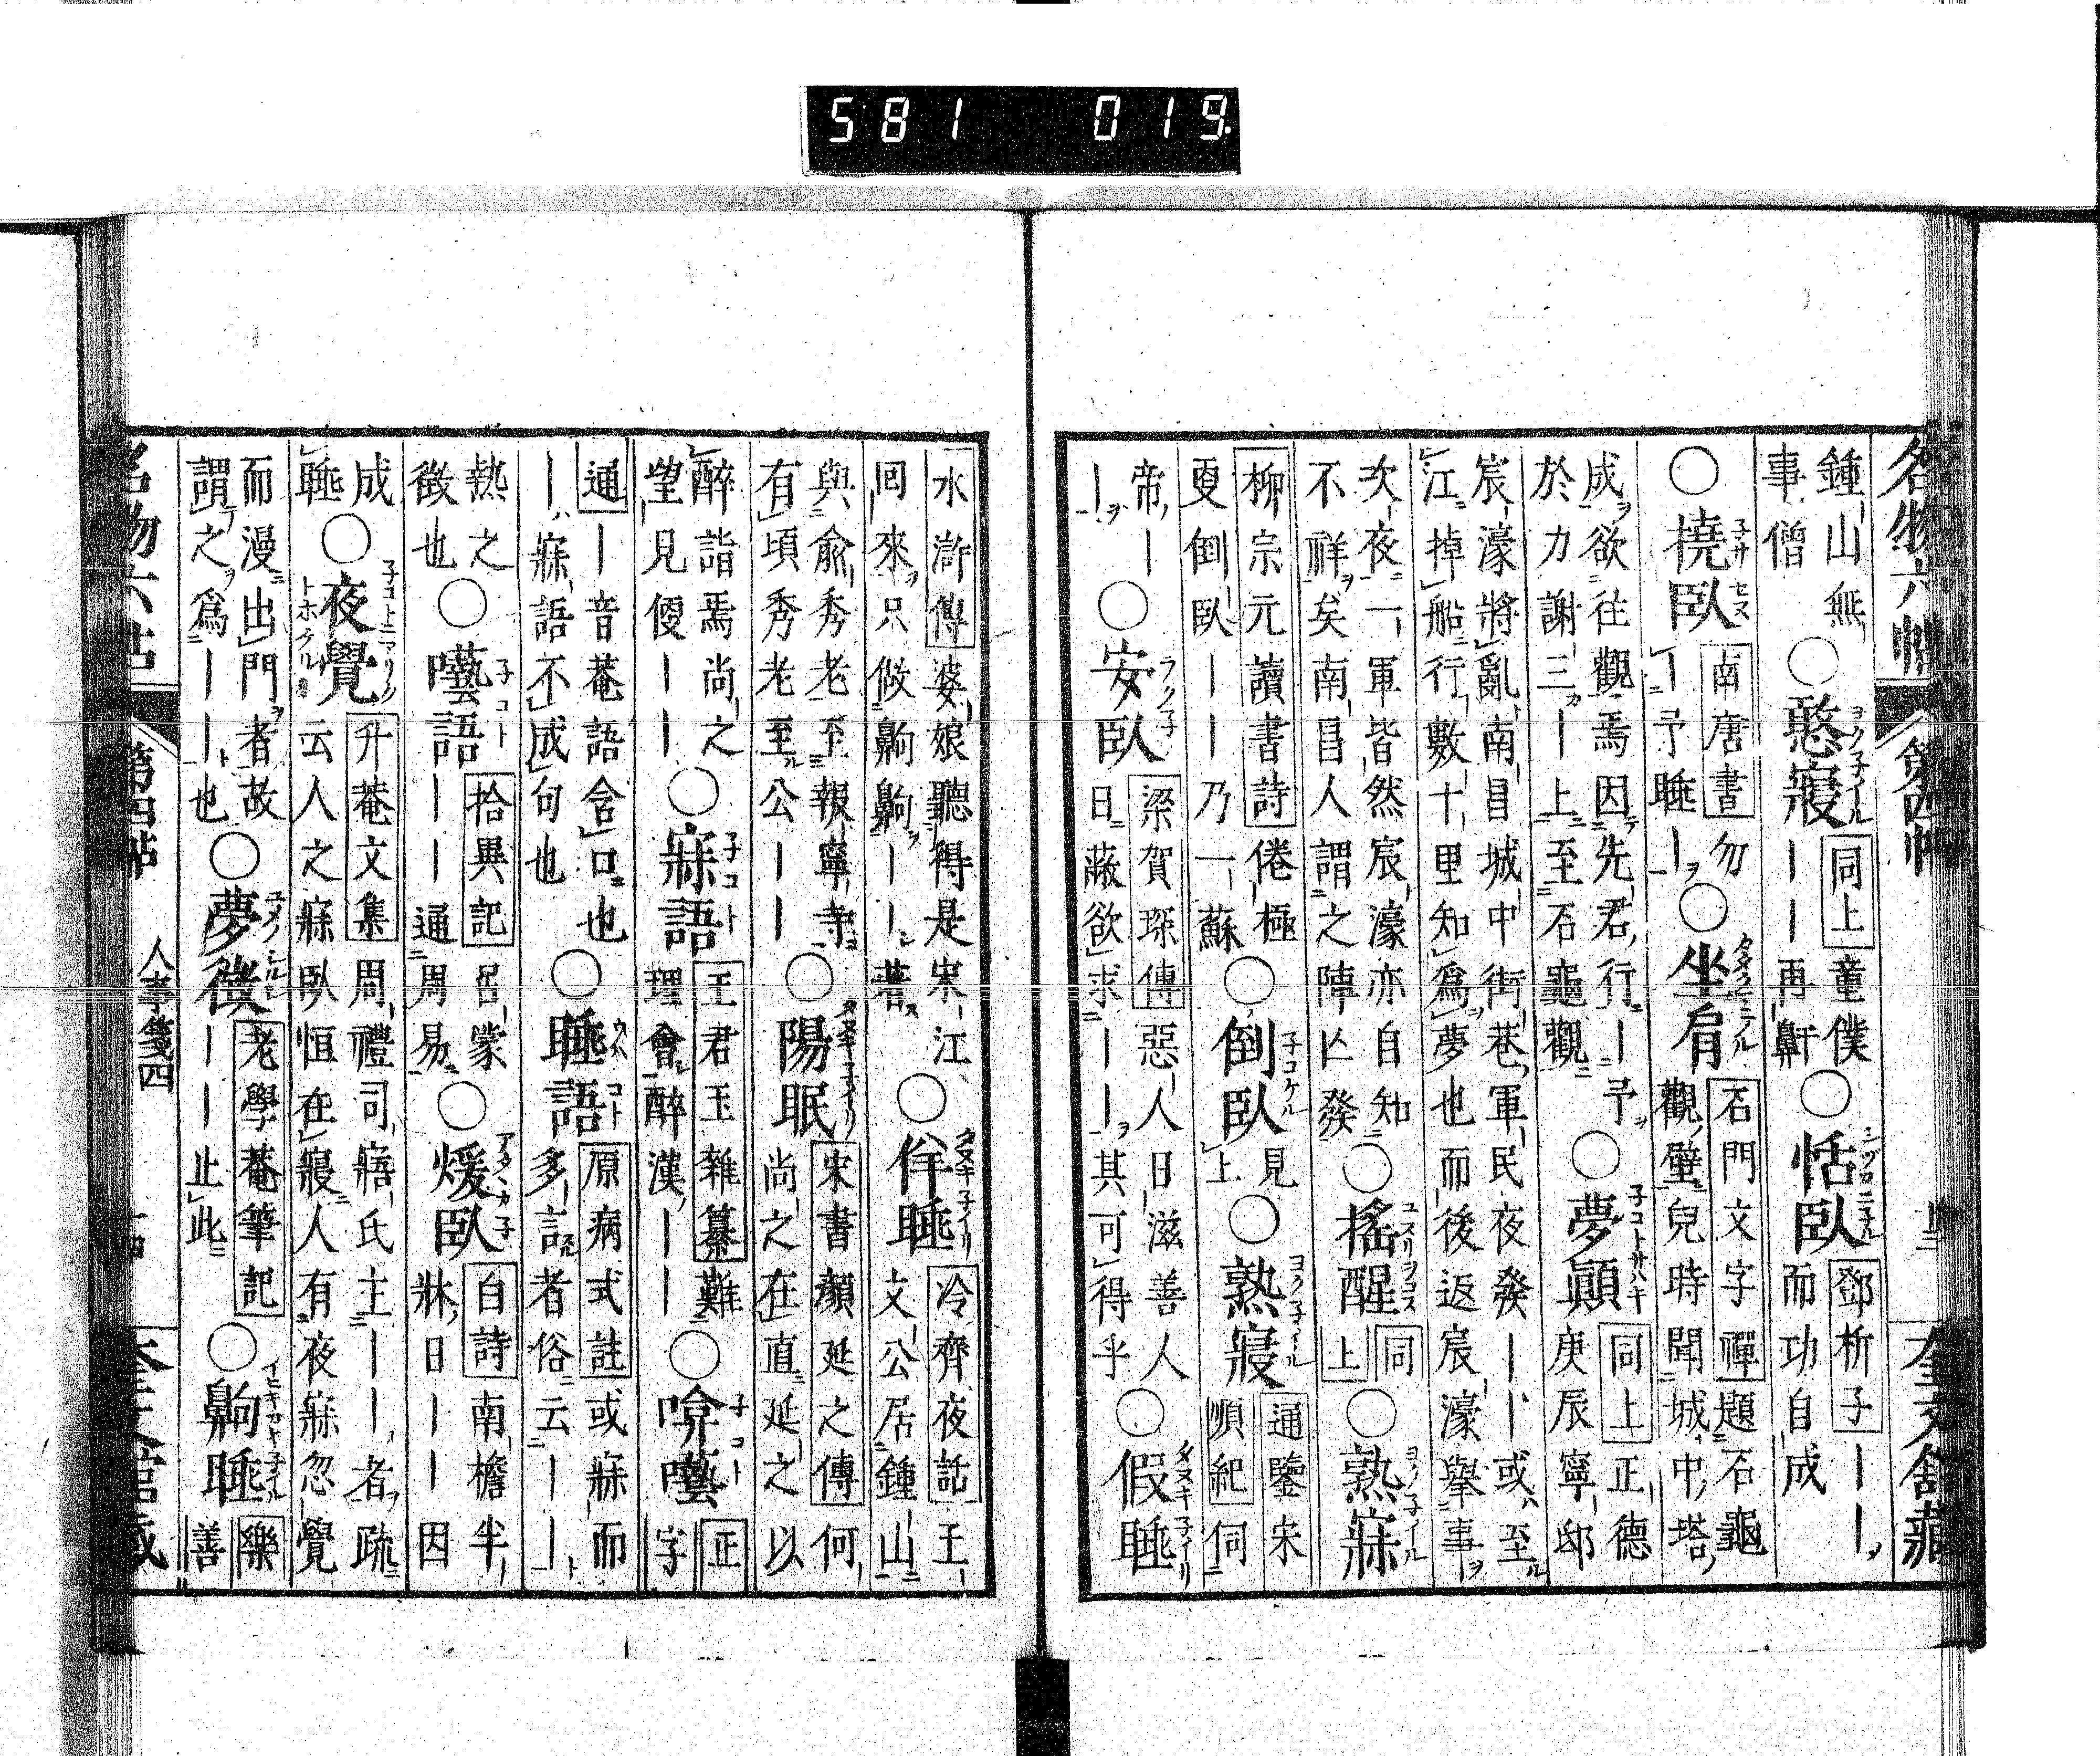 581 019
名物六帖 第四帖 奎文館藏
鍾山無事僧 ○憨寢 ヨク子イル 同上 童僕｜｜再鼾 ○恬臥 シヅカニ子ル 鄧析子｜｜而功自成
○撓臥 子サセヌ 南唐書 勿｜予睡｜ ○坐肩 石門文字禪 題石龜觀壁 兒時聞城中塔
成欲往觀焉因先君行｜予於力謝三｜上至石龜觀 ○夢顚 子コトサハキ 同上 正德庚辰寧邸
宸濠將亂南昌城中街巷軍民夜發｜｜或至江掉船行數十里知爲夢也而後返宸濠擧事
次夜一軍皆然宸濠亦自知不祥矣南昌人謂之陣亡發 ○搖醒 ユスリヲコス 同上 ○熟寐 ヨク子イル
柳宗元讀書詩 倦極更倒臥｜｜乃一蘇 ○倒臥 子コケル 見上 ○熟寢 ヨク子イル 通鑒宋順紀 伺
帝｜｜ ○安臥 ラク子 梁賀琛傳 惡人日滋善人日蔽欲求｜｜其可得乎 ○假睡 タヌキ子イリ
水滸傳 婆娘聽得是宋江回來只做齁齁｜｜著 ○佯睡 タヌキ子イリ 冷齊夜話 王文公居鍾山
與俞秀老至報寧寺有頃秀老至公｜｜ ○陽眠 宋書顏延之傳 何尚之在直延之以
醉詣焉尚之望見便｜｜ ○寐語 子コト 王君玉雜纂 難理會醉漢｜｜ ○啽囈 子コト 正字
通 ｜音菴語含口也｜寐語不成句也 ○睡語 原病式註 或寐而多言者俗云｜｜
熱之徵也 ○囈語 子コト 拾異記 呂蒙｜｜通周易 ○煖臥 アタヽカ子 白詩 南檐半牀日｜｜因
成睡 ○夜覺 升菴文集 周禮司寤氏主｜｜者疏云人之寐臥恒在寢人有夜寐忽覺
而漫出門者故謂之爲｜｜也 ○夢徵 老學菴筆記 ｜｜止此 ○齁睡 樂善
名物六帖 第四帖 人事箋四 奎文館藏